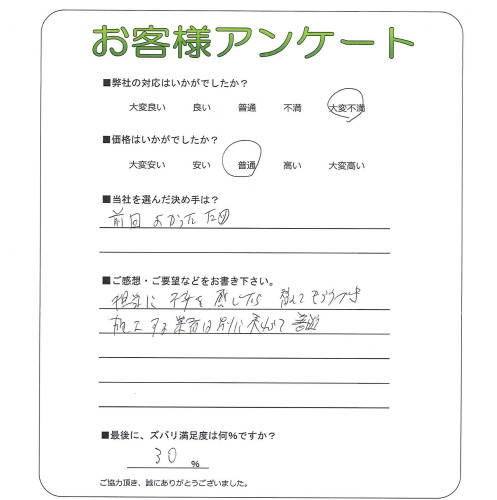 お客様アンケート
■弊社の対応はいかがでしたか?
大変良い 良い 普通 不満 大変不満
■価格はいかがでしたか?
大変安い 安い 普通 高い 大変高い
■当社を選んだ決め手は?
前回 よかった ため
■ご感想・ご要望などをお書き下さい。
担当に 不安を 感じたら
施工する業者は別に
■最後に、ズバリ満足度は何%ですか?
30 %
ご協力頂き、誠にありがとうございました。